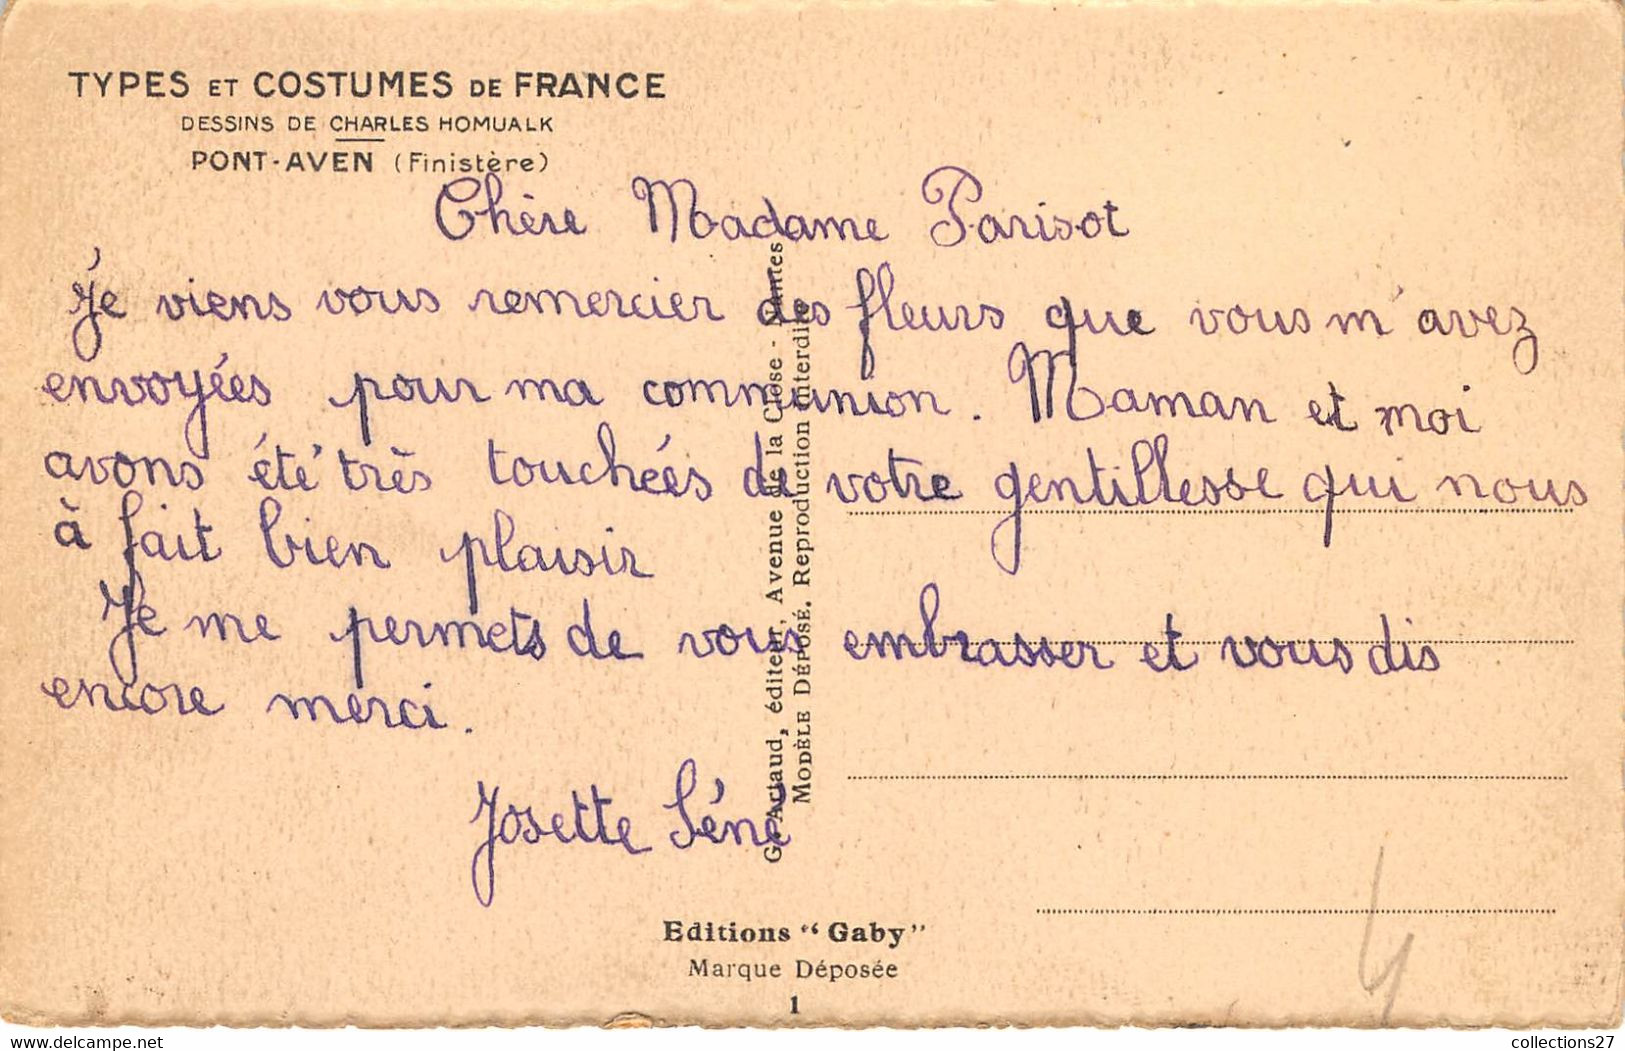 TYPES ET COSTUMES DE FRANCE
DESSINS DE CHARLES HOMUALK
PONT-AVEN (Finistère)
Chère Madame Parisot
Je viens vous remercier des fleurs que vous m'avez
envoyées pour ma communion. Maman et moi
avons été très touchées de votre gentillesse qui nous
à fait bien plaisir
Je me permets de vous embrasser et vous dis
encore merci.
Josette Séné
G. Artaud, éditeur, Avenue de la Close - Nantes
MODÈLE DÉPOSÉ. Reproduction interdite
Editions "Gaby"
Marque Déposée
1
4
https://www.delcampe.net
collections27